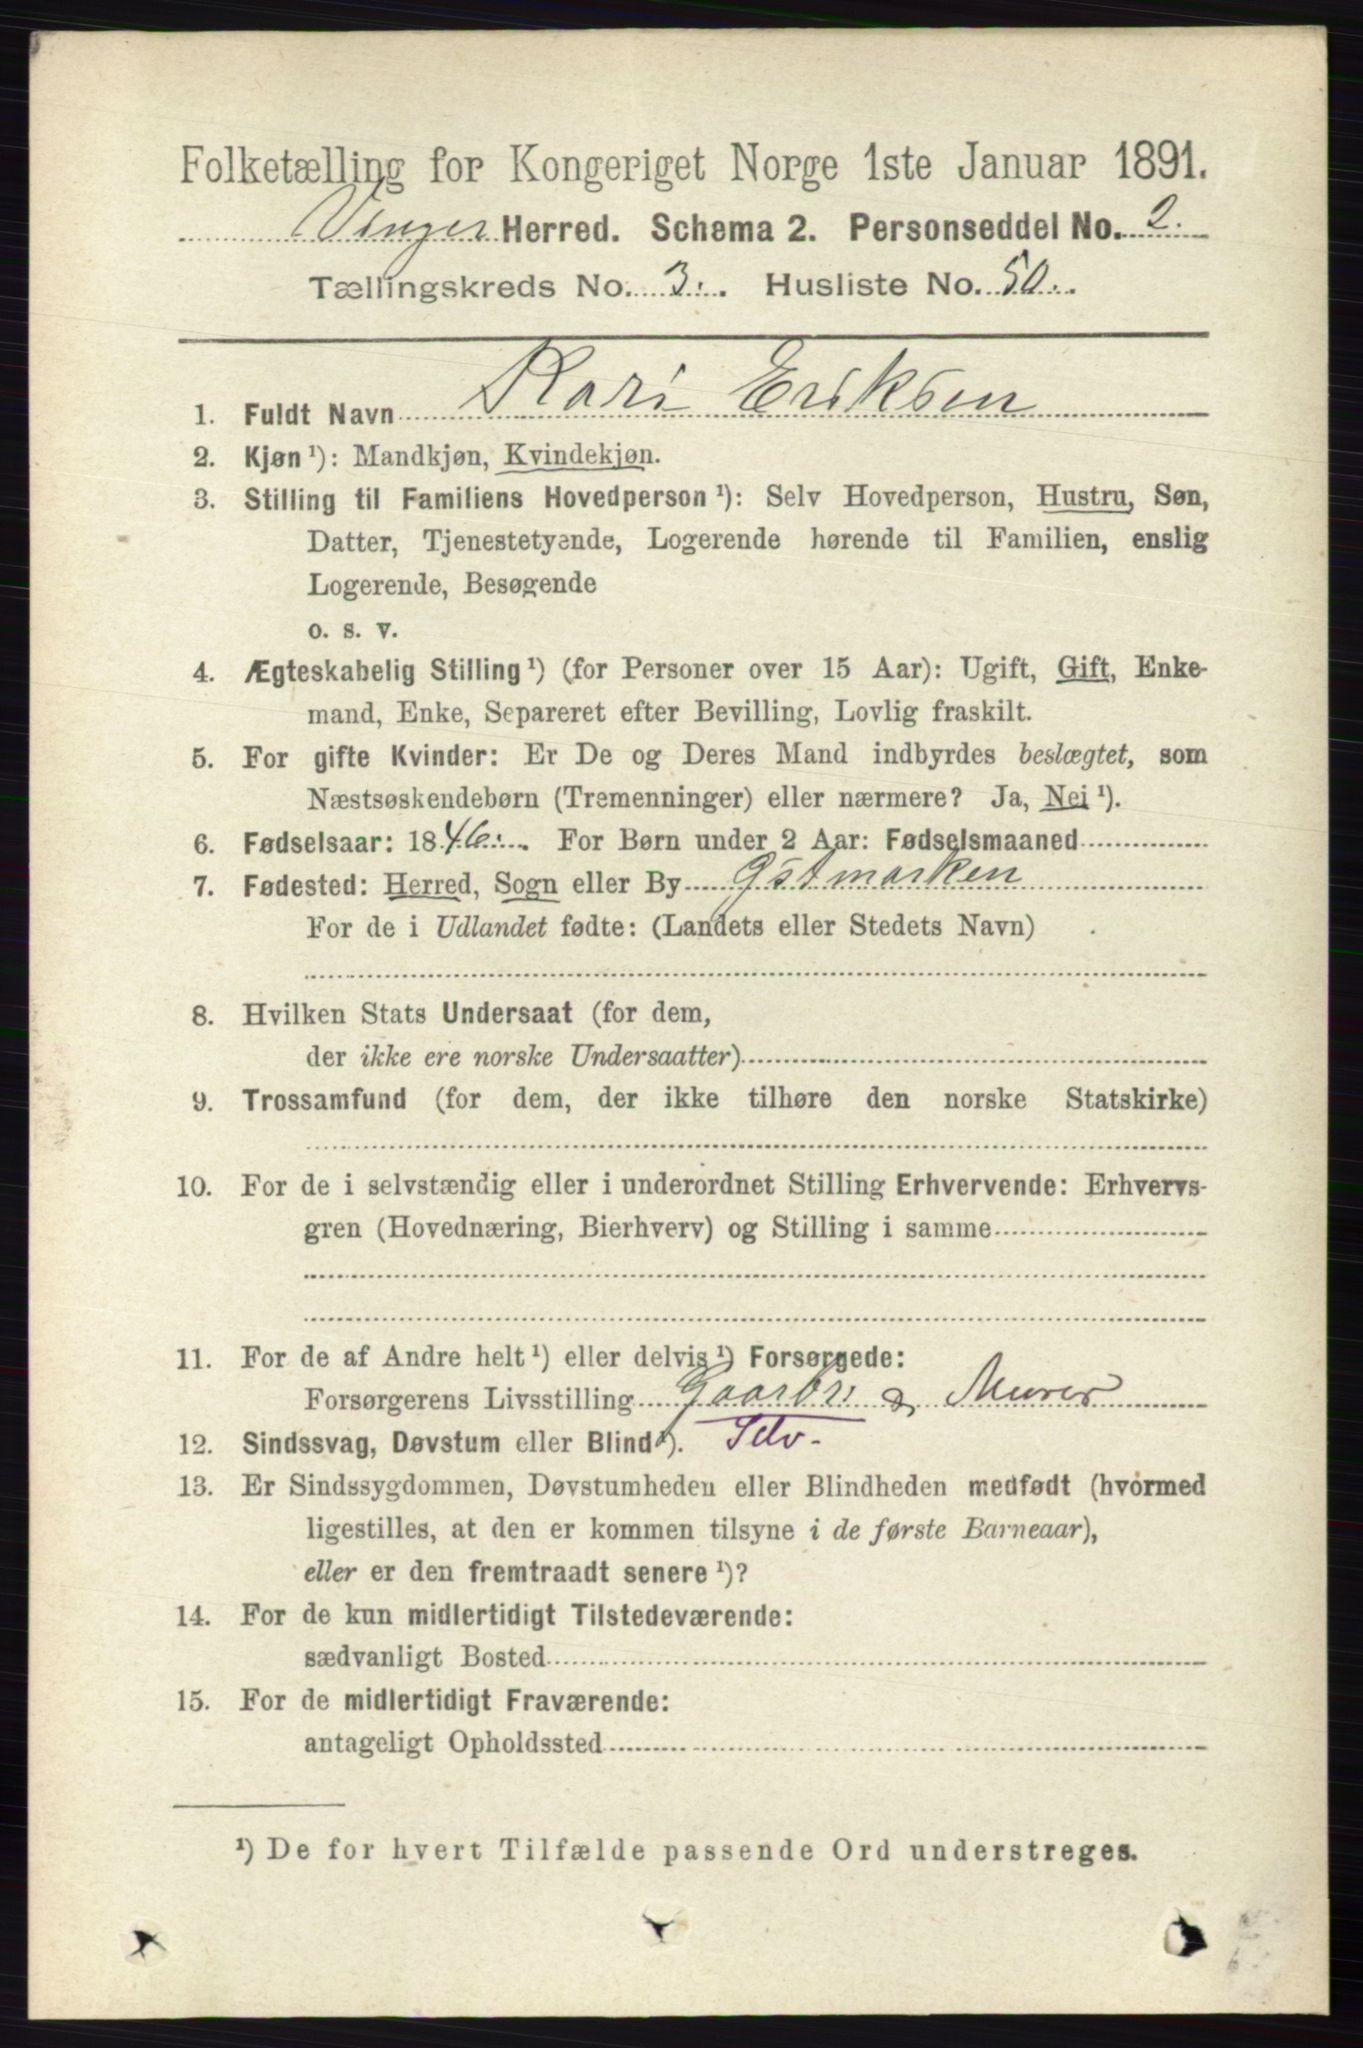 Folketælling for Kongeriget Norge 1ste Januar 1891.
Vinger Herred. Schema 2. Personseddel No. 2.
Tællingskreds No. 3. Husliste No. 50.
1. Fuldt Navn Kari Eriksen
2. Kjøn ¹): Mandkjøn, Kvindekjøn.
3. Stilling til Familiens Hovedperson ¹): Selv Hovedperson, Hustru, Søn,
Datter, Tjenestetyende, Logerende hørende til Familien, enslig
Logerende, Besøgende
o. s. v.
4. Ægteskabelig Stilling ¹) (for Personer over 15 Aar): Ugift, Gift, Enke-
mand, Enke, Separeret efter Bevilling, Lovlig fraskilt.
5. For gifte Kvinder: Er De og Deres Mand indbyrdes beslægtet, som
Næstsøskendebørn (Tremenninger) eller nærmere? Ja, Nei ¹).
6. Fødselsaar: 1846. For Børn under 2 Aar: Fødselsmaaned
7. Fødested: Herred, Sogn eller By Østmarken
For de i Udlandet fødte: (Landets eller Stedets Navn)
8. Hvilken Stats Undersaat (for dem,
der ikke ere norske Undersaatter)
9. Trossamfund (for dem, der ikke tilhøre den norske Statskirke)
10. For de i selvstændig eller i underordnet Stilling Erhvervende: Erhvervs-
gren (Hovednæring, Bierhverv) og Stilling i samme
11. For de af Andre helt ¹) eller delvis ¹) Forsørgede:
Forsørgerens Livsstilling Gaarbr. & Murer
12. Sindssvag, Døvstum eller Blind ¹). Selv.
13. Er Sindssygdommen, Døvstumheden eller Blindheden medfødt (hvormed
ligestilles, at den er kommen tilsyne i de første Barneaar),
eller er den fremtraadt senere ¹)?
14. For de kun midlertidigt Tilstedeværende:
sædvanligt Bosted
15. For de midlertidigt Fraværende:
antageligt Opholdssted
¹) De for hvert Tilfælde passende Ord understreges.